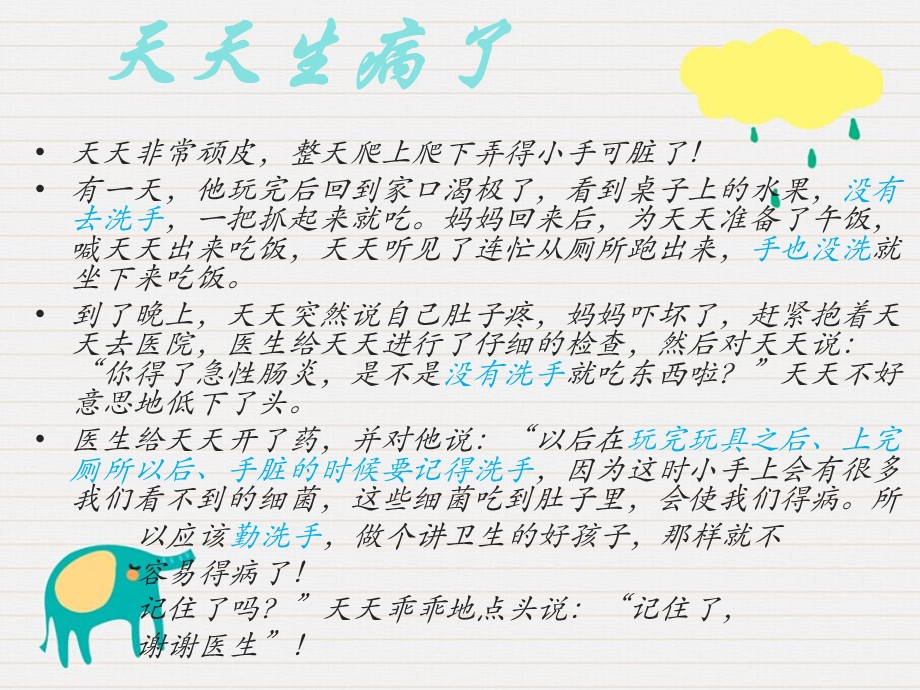 天天生病了
• 天天非常顽皮，整天爬上爬下弄得小手可脏了！
• 有一天，他玩完后回到家口渴极了，看到桌子上的水果，没有
去洗手，一把抓起来就吃。妈妈回来后，为天天准备了午饭，
喊天天出来吃饭，天天听见了连忙从厕所跑出来，手也没洗就
坐下来吃饭。
• 到了晚上，天天突然说自己肚子疼，妈妈吓坏了，赶紧抱着天
天去医院，医生给天天进行了仔细的检查，然后对天天说：
“你得了急性肠炎，是不是没有洗手就吃东西啦？”天天不好
意思地低下了头。
• 医生给天天开了药，并对他说：“以后在玩完玩具之后、上完
厕所以后、手脏的时候要记得洗手，因为这时小手上会有很多
我们看不到的细菌，这些细菌吃到肚子里，会使我们得病。所
以应该勤洗手，做个讲卫生的好孩子，那样就不
容易得病了！
记住了吗？”天天乖乖地点头说：“记住了，
谢谢医生”！